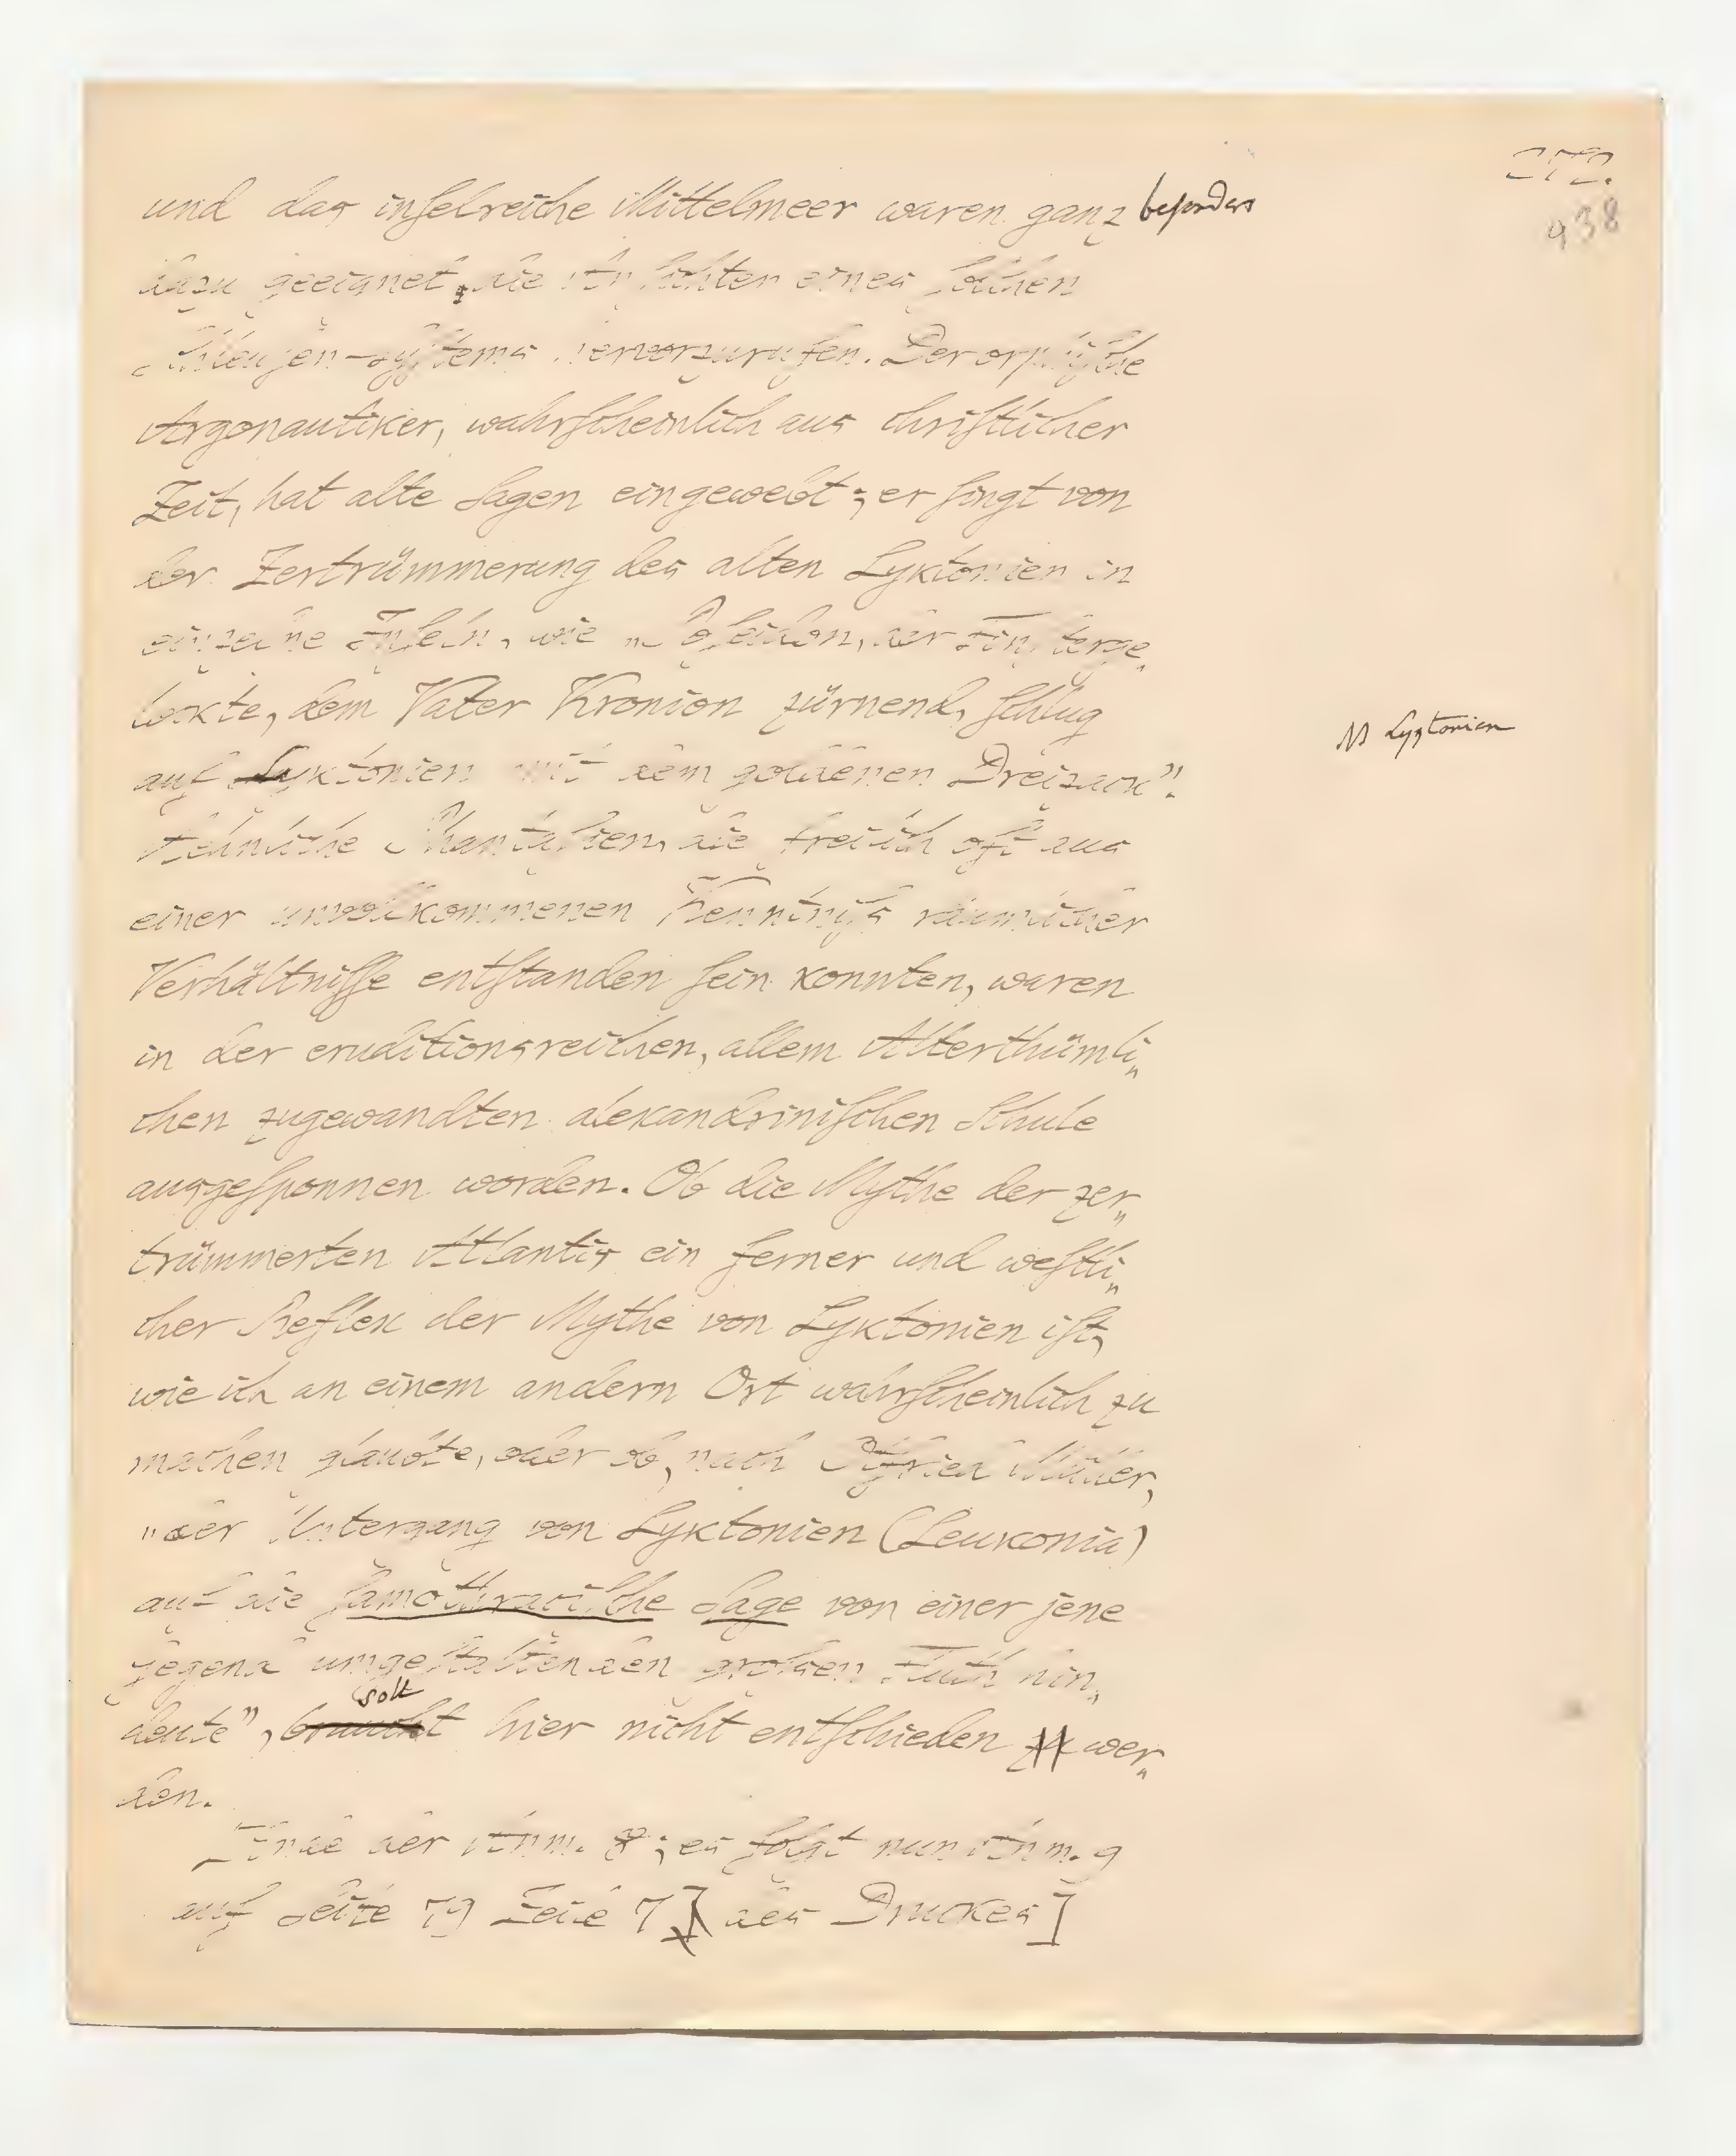 938
und das inselreiche Mittelmeer waren ganz besonders
dazu geeignet, die Ansichten eines solchen
Schleusen-Systems hervorzurufen. Der orphische
Argonautiker, wahrscheinlich aus christlicher
Zeit, hat alte Sagen eingewebt; er singt von
der Zertrümmerung des alten Lyktonien in
einzelne Inseln, wie „Poseidon, der Finsterge„
lockte, dem Vater Kronion zürnend, schlug
auf Lyktonien mit dem goldenen Dreizack".
Lyktonien
Aehnliche Phantasien, die freilich oft aus
einer unvollkommenen Kenntniss räumlicher
Verhältnisse entstanden sein konnten, waren
in der eruditionsreichen, allem Alterthümli„
chen zugewandten alexandrinischen Schule
ausgesponnen worden. Ob die Mythe der zer„
trümmerten Atlantis ein ferner und westli„
cher Reflex der Mythe von Lyktonien ist,
wie ich an einem andern Ort wahrscheinlich zu
machen glaubte, oder ob, nach Otfried Müller,
„der Untergang von Lyktonien (Leukonia)
auf die samothracische Sage von einer jene
Gegend umgestaltenden großen Fluth hin„
deute", braucht soll hier nicht entschieden zu wer„
den.
Ende der Anm. 8; es folgt nun Anm. 9
auf Seite 79 Zeile 7] des Druckes]